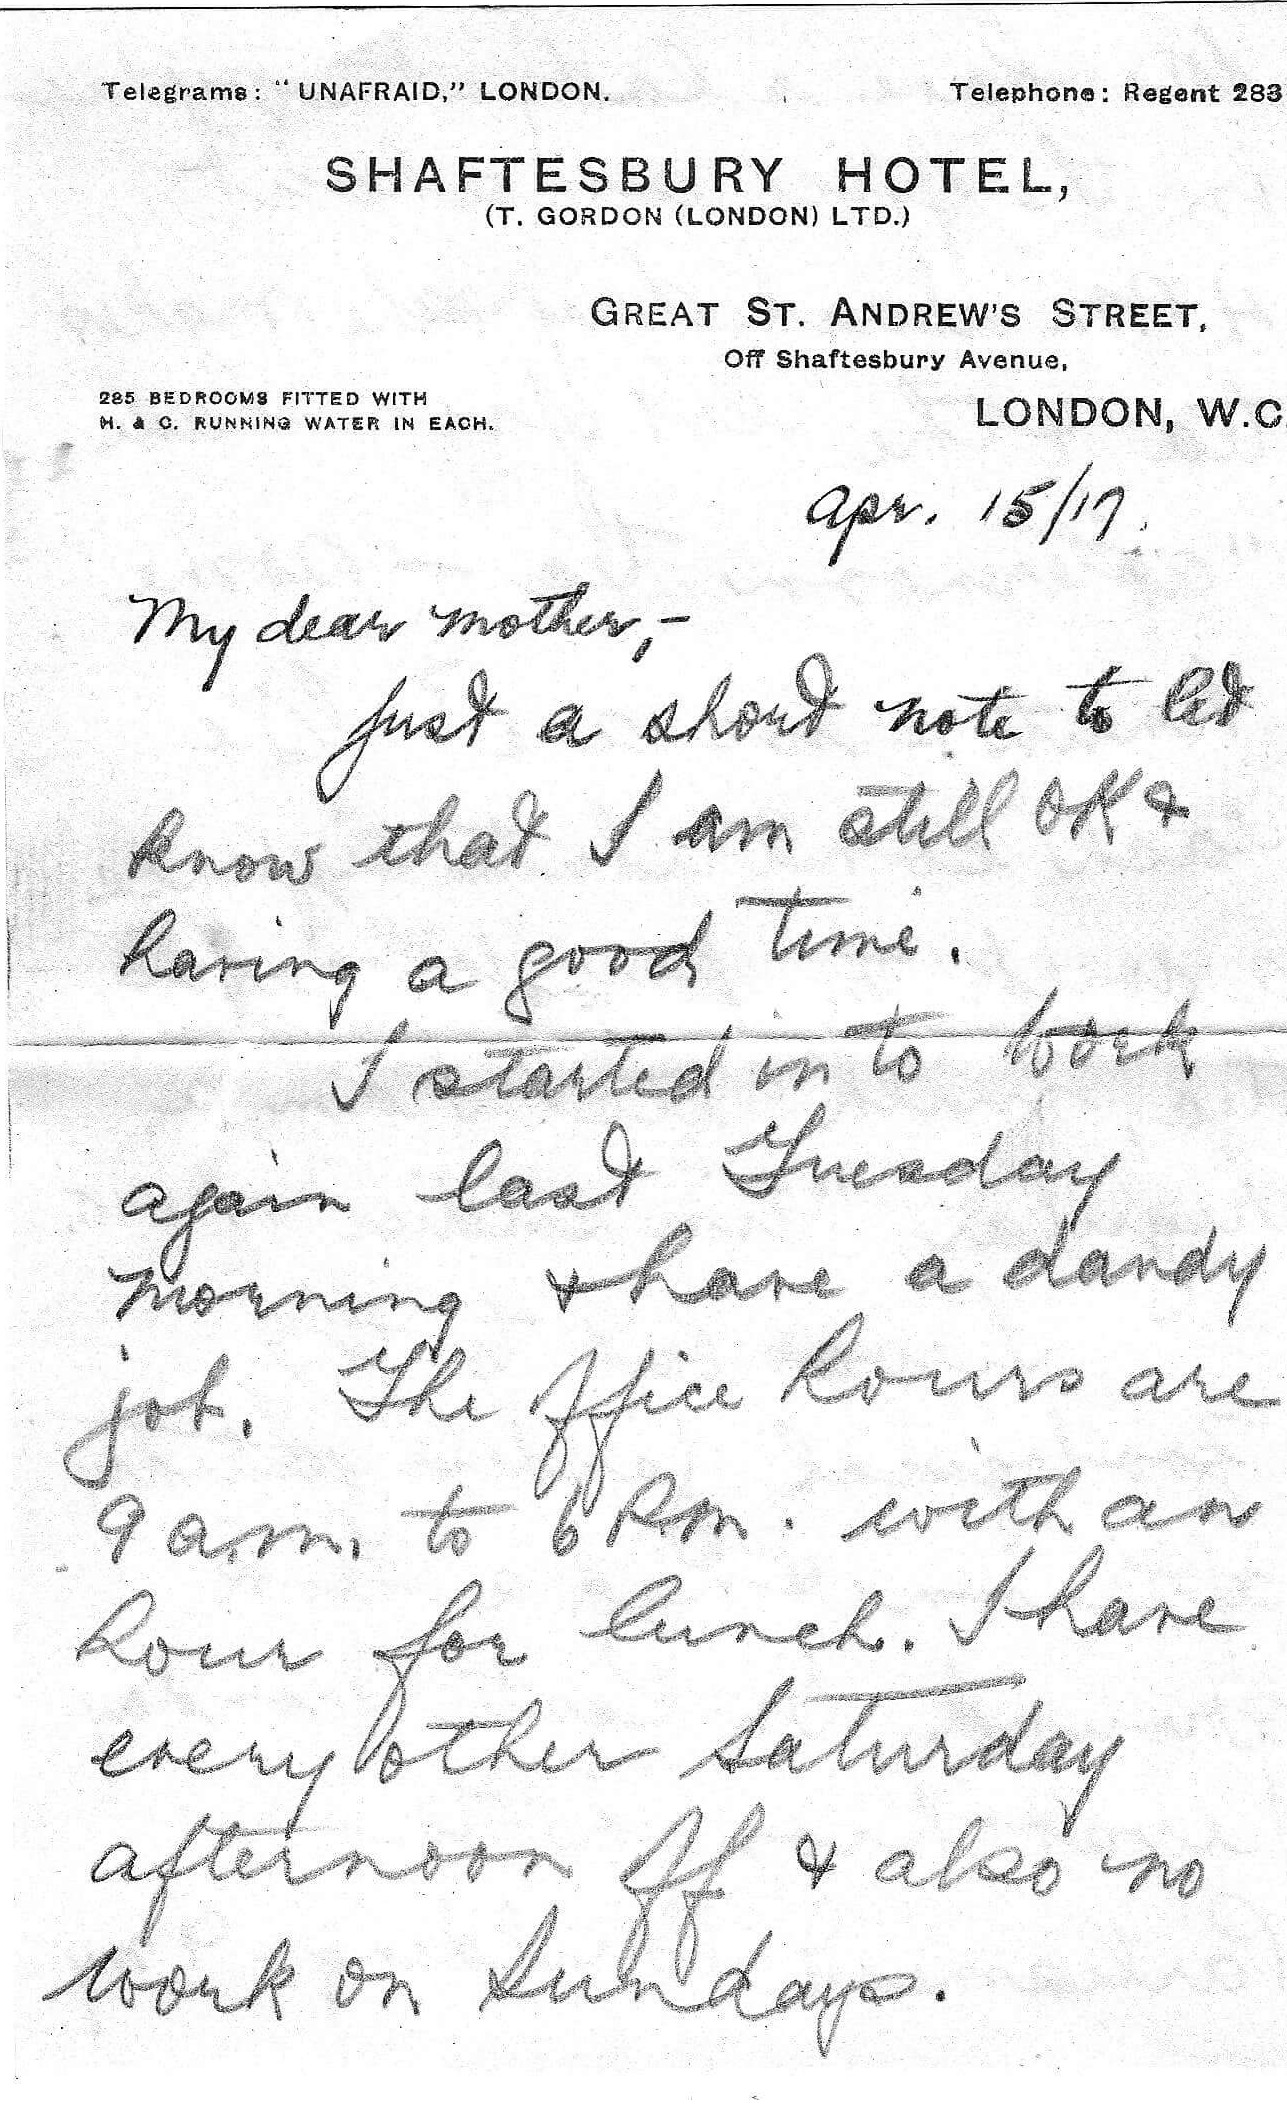 Telegrams: "UNAFRAID," LONDON. Telephone: Regent 283
SHAFTESBURY HOTEL,
(T. GORDON (LONDON) LTD.)
GREAT ST. ANDREW'S STREET,
Off Shaftesbury Avenue,
285 BEDROOMS FITTED WITH
H. & C. RUNNING WATER IN EACH.
LONDON, W.C.
Apr. 15/17.
My dear mother,-
Just a short note to let
know that I am still OK &
having a good time.
I started in to work
again last Tuesday
morning & have a dandy
job. The office hours are
9 a.m. to 6 P.m. with an
hour for lunch. I have
every other Saturday
afternoon off & also no
work on Sundays.